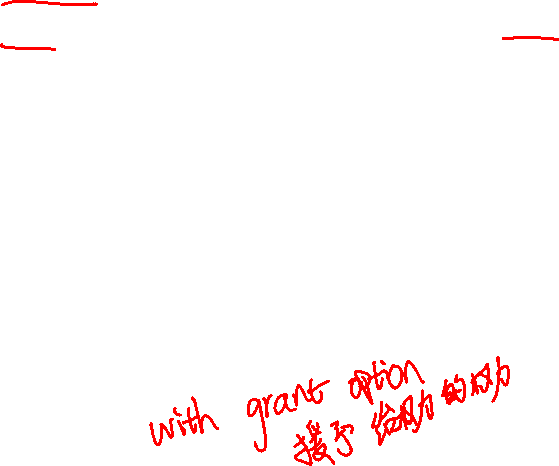 with grant option
授予 给权力的权力